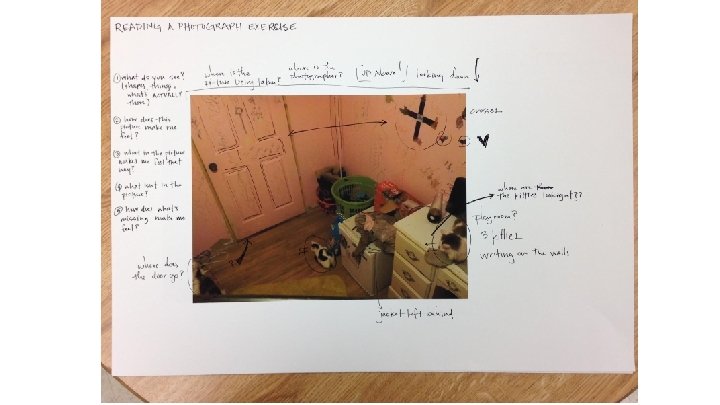 READING A PHOTOGRAPH EXERCISE
where is the
picture being taken?
where is the
photographer?
up above / looking down
① what do you see?
(shapes, things,
what's ACTUALLY
there?)
② how does this
picture make me
feel?
③ what in the picture
makes me feel that
way?
④ what isn't in the
picture?
⑤ how does what's
missing make me
feel?
crosses
where are
the kitties looking at??
playroom?
3 kitties
writing on the walls
where does
the door go?
jacket left behind